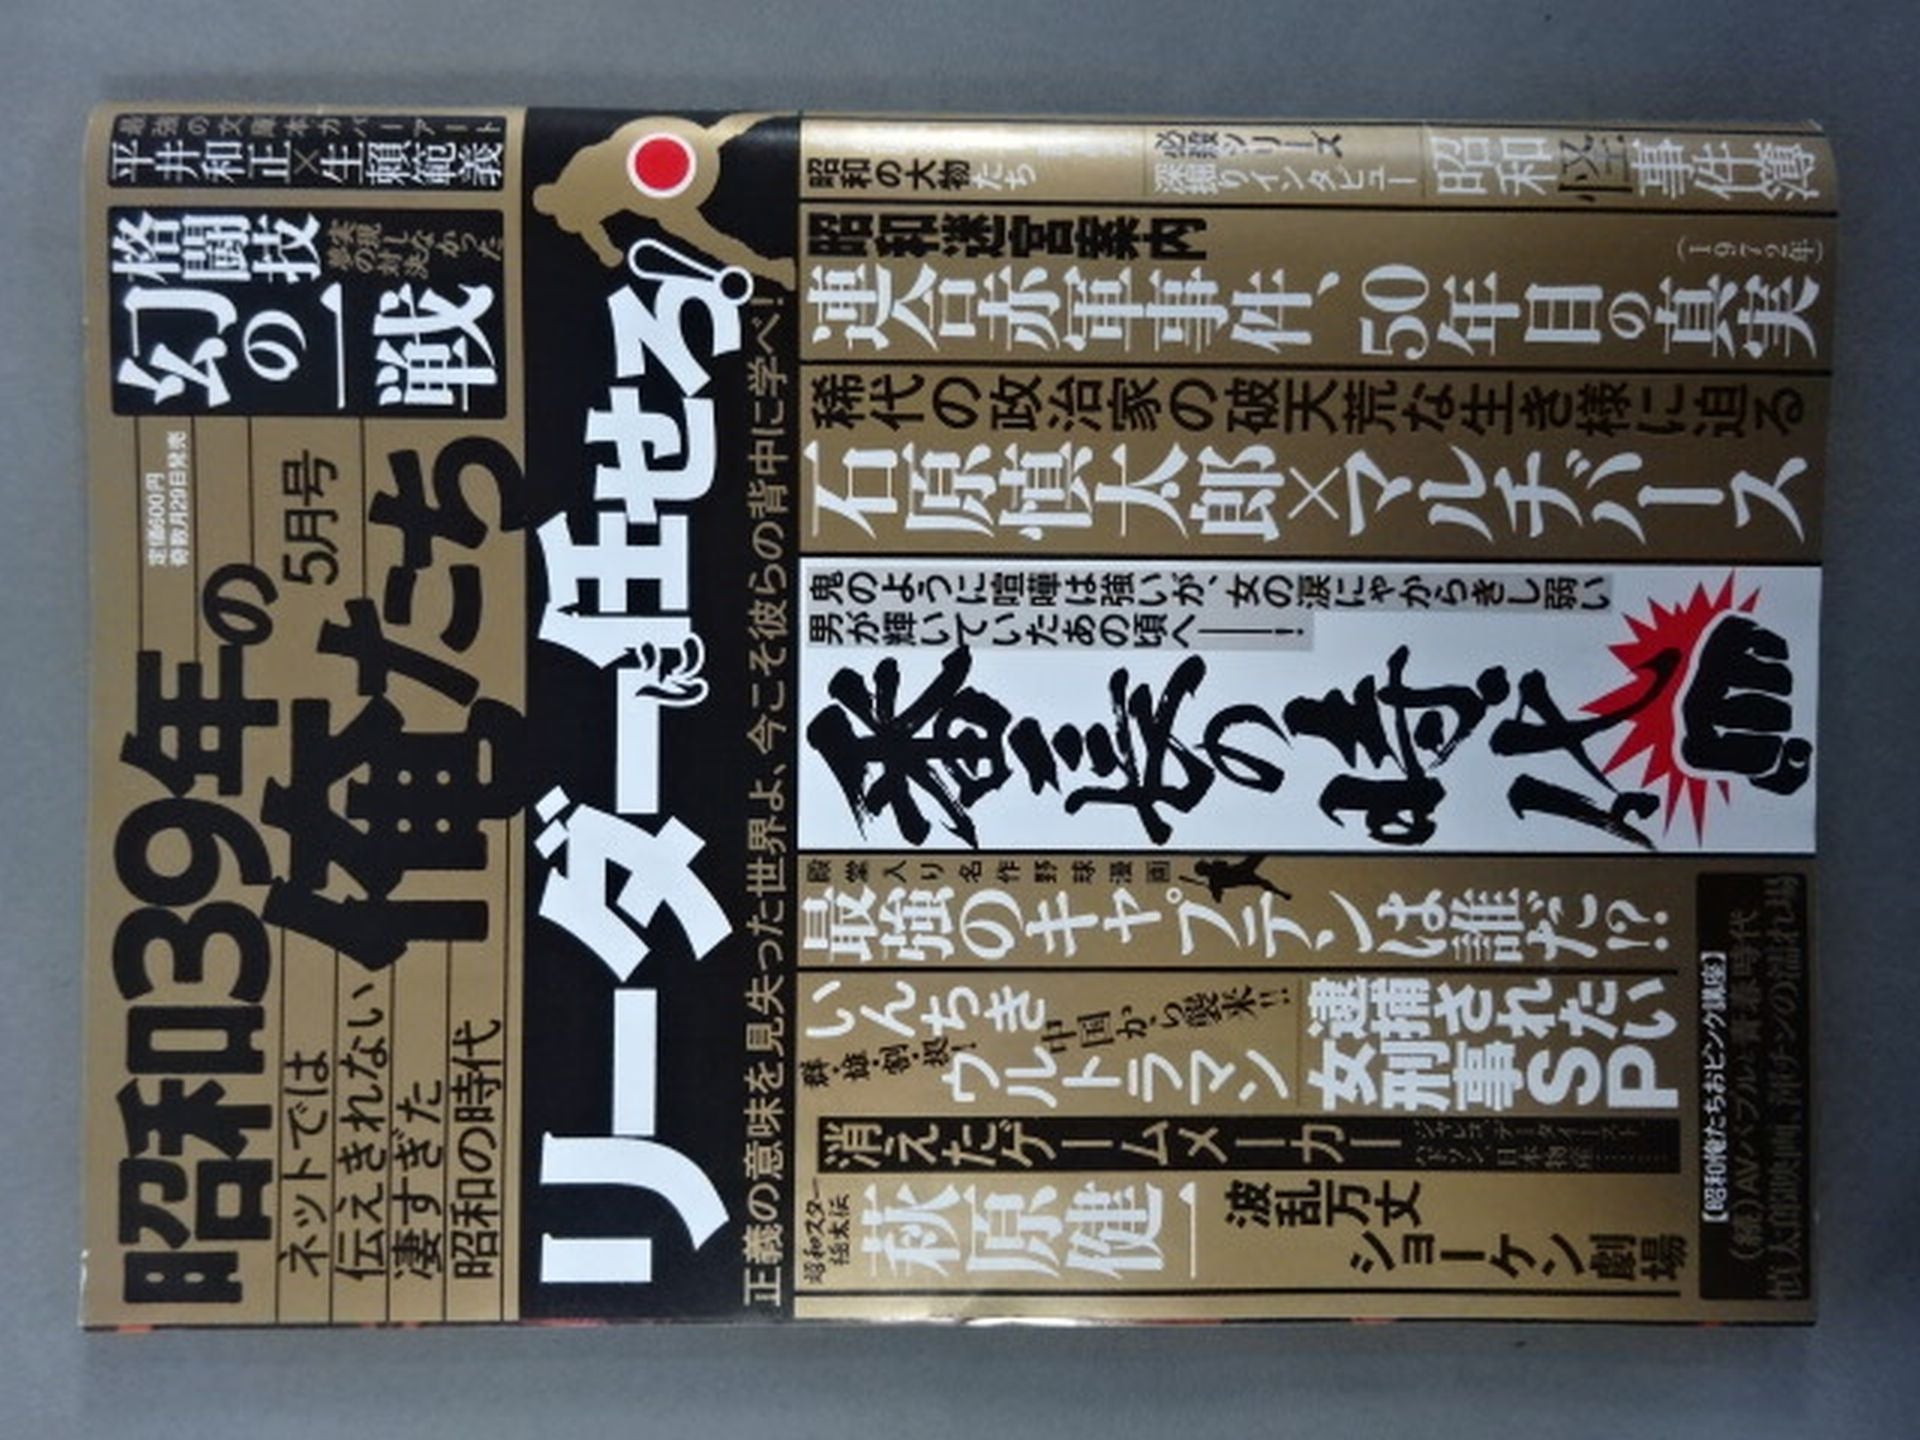 昭和39年の
俺たち
5月号
定価600円
奇数月29日発売
ネットでは
伝えきれない
凄すぎた
昭和の時代
最強の文庫本カバーアート
平井和正×生賴範義
格闘技
幻の一戦
実現しなかった
夢の対決
リーダーは任せろ!
正義の意味を見失った世界よ、今こそ彼らの背中に学べ!
昭和の大物たち
必殺シリーズ
深掘りインタビュー
昭和怪事件簿
昭和迷宮案内
(1972年)
連合赤軍事件、50年目の真実
稀代の政治家の破天荒な生き様に迫る
石原慎太郎×マルチバース
鬼のように喧嘩は強いが、女の涙にゃからきし弱い
男が輝いていたあの頃へ――!
番長の時代
殿堂入り名作野球漫画
最強のキャプテンは誰だ!?
いんちき
ウルトラマン
群・雄・割・拠!
中国から襲来!!
逮捕されたい
女刑事SP
消えたゲームメーカー
ジャレコ、データイースト、
ハドソン、日本物産
昭和スター
極太伝
萩原健一
波乱万丈
ショーケン劇場
【昭和俺たちおピンク講座】
(続)AVバブルと青春時代
慎太郎映画、洋チンの溢れ場